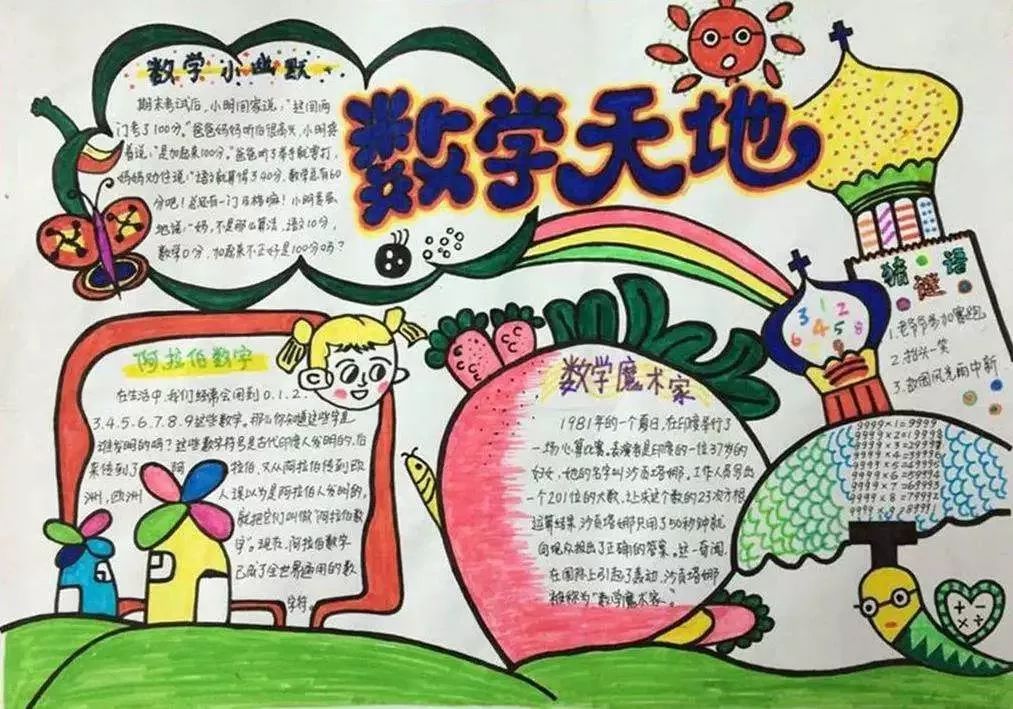 数学天地
数学小幽默
期末考试后，小明回家说："这回两
门考了100分。"爸爸妈妈听后很高兴，小明接
着说："是加起来100分。"爸爸听了举手就要打，
妈妈劝住说："语文就算得了40分，数学总有60
分吧！总还有一门及格嘛！小明委屈
地说："妈，不是那么算法，语文10分，
数学0分，加起来不正好是100分吗？
阿拉伯数字
在生活中，我们经常会用到0.1.2.
3.4.5.6.7.8.9这些数字。那么你知道这些字是
谁发明的吗？这些数字符号是古代印度人发明的，后
来传到了阿拉伯，又从阿拉伯传到欧
洲，欧洲人误以为是阿拉伯人发明的，
就把它们叫做"阿拉伯数
字"。现在，阿拉伯数字
已成了全世界通用的数
字符。
数学魔术家
1981年的一个夏日，在印度举行了
一场心算比赛。表演者是印度的一位37岁的
妇女，她的名字叫沙贡塔娜。工作人员写出
一个201位的大数，让求这个数的23次方根
运算结果，沙贡塔娜只用了50秒钟就
向观众报出了正确的答案。这一奇闻，
在国际上引起了轰动，沙贡塔娜
被称为"数学魔术家。"
猜谜语
1.老爷爷参加赛跑
2.抬头一笑
3.故国风光雨中新
3 1 2
6 4 5 8
9999×1=9999